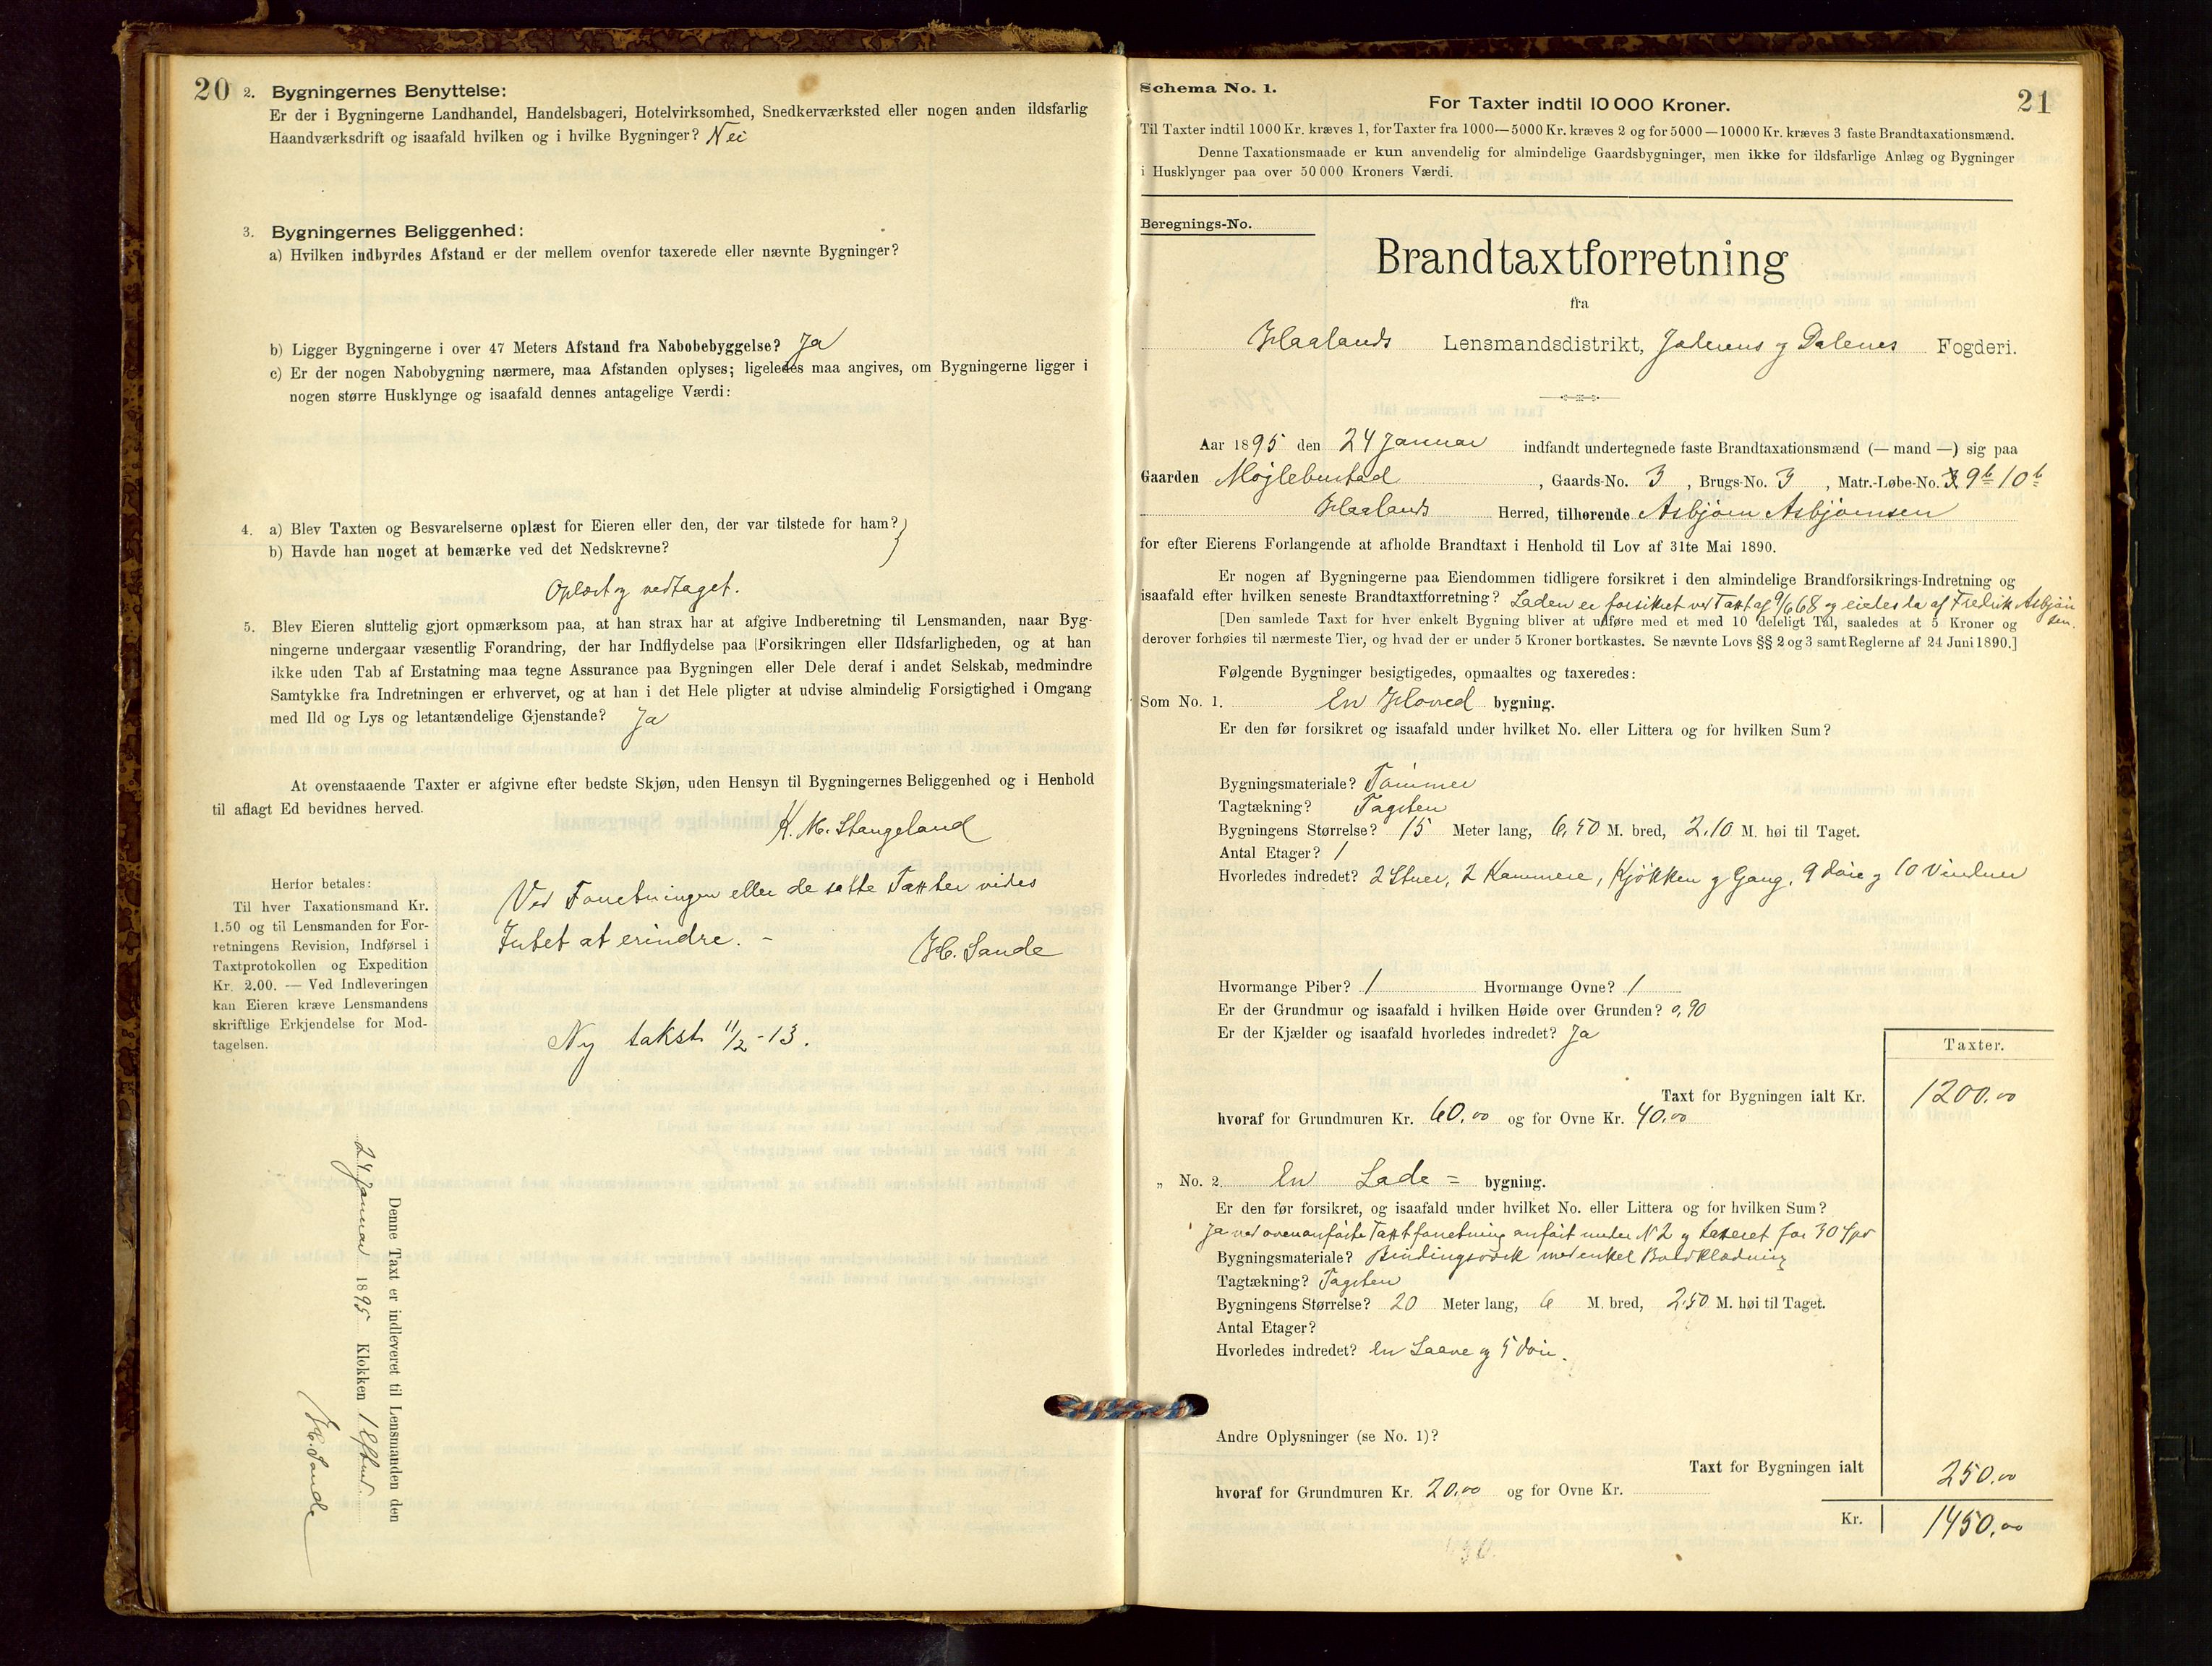 20
2. Bygningernes Benyttelse:
Er der i Bygningerne Landhandel, Handelsbageri, Hotelvirksomhed, Snedkerværksted eller nogen anden ildsfarlig
Haandværksdrift og isaafald hvilken og i hvilke Bygninger? Nei
3. Bygningernes Beliggenhed:
a) Hvilken indbyrdes Afstand er der mellem ovenfor taxerede eller nævnte Bygninger?
b) Ligger Bygningerne i over 47 Meters Afstand fra Nabobebyggelse? Ja
c) Er der nogen Nabobygning nærmere, maa Afstanden oplyses; ligeledes maa angives, om Bygningerne ligger i
nogen større Husklynge og isaafald dennes antagelige Værdi:
4. a) Blev Taxten og Besvarelserne oplæst for Eieren eller den, der var tilstede for ham?
b) Havde han noget at bemærke ved det Nedskrevne?
Oplæst og vedtaget.
5. Blev Eieren sluttelig gjort opmærksom paa, at han strax har at afgive Indberetning til Lensmanden, naar Byg-
ningerne undergaar væsentlig Forandring, der har Indflydelse paa Forsikringen eller Ildsfarligheden, og at han
ikke uden Tab af Erstatning maa tegne Assurance paa Bygningen eller Dele deraf i andet Selskab, medmindre
Samtykke fra Indretningen er erhvervet, og at han i det Hele pligter at udvise almindelig Forsigtighed i Omgang
med Ild og Lys og letantændelige Gjenstande? Ja
At ovenstaaende Taxter er afgivne efter bedste Skjøn, uden Hensyn til Bygningernes Beliggenhed og i Henhold
til aflagt Ed bevidnes herved.
K. M. Stangeland
Herfor betales:
Til hver Taxationsmand Kr.
1.50 og til Lensmanden for For-
retningens Revision, Indførsel i
Taxtprotokollen og Expedition
Kr. 2.00. — Ved Indleveringen
kan Eieren kræve Lensmandens
skriftlige Erkjendelse for Mod-
tagelsen.
Ved Forretningen eller de satte Taxter vides
Intet at erindre. -
H. Sande
Ny takst 11/2 - 13.
Denne Taxt er indleveret til Lensmanden den
24 Januar 1895 Klokken 1 Efterm.
H. Sande
21
Schema No. 1.
For Taxter indtil 10 000 Kroner.
Til Taxter indtil 1000 Kr. kræves 1, for Taxter fra 1000—5000 Kr. kræves 2 og for 5000—10000 Kr. kræves 3 faste Brandtaxationsmænd.
Denne Taxationsmaade er kun anvendelig for almindelige Gaardsbygninger, men ikke for ildsfarlige Anlæg og Bygninger
i Husklynger paa over 50 000 Kroners Værdi.
Beregnings-No.
Brandtaxtforretning
fra
Haalands Lensmandsdistrikt, Jæderens og Dalenes Fogderi.
Aar 1895 den 24 Januar indfandt undertegnede faste Brandtaxationsmænd (— mand —) sig paa
Gaarden Møjlebustad, Gaards-No. 3, Brugs-No. 3, Matr.-Løbe-No. 9b 10b
Haalands Herred, tilhørende Asbjørn Asbjørnsen
for efter Eierens Forlangende at afholde Brandtaxt i Henhold til Lov af 31te Mai 1890.
Er nogen af Bygningerne paa Eiendommen tidligere forsikret i den almindelige Brandforsikrings-Indretning og
isaafald efter hvilken seneste Brandtaxtforretning? Laden er forsikret ved Taxt af 9/6 68 og eiedes da af Fredrik Asbjørn
sen.
[Den samlede Taxt for hver enkelt Bygning bliver at udføre med et med 10 deleligt Tal, saaledes at 5 Kroner og
derover forhøies til nærmeste Tier, og hvad der er under 5 Kroner bortkastes. Se nævnte Lovs §§ 2 og 3 samt Reglerne af 24 Juni 1890.]
Følgende Bygninger besigtigedes, opmaaltes og taxeredes:
Som No. 1. En Hoved bygning.
Er den før forsikret og isaafald under hvilket No. eller Littera og for hvilken Sum?
Bygningsmateriale? Tømmer
Tagtækning? Tagsten
Bygningens Størrelse? 15 Meter lang, 6,50 M. bred, 2,10 M. høi til Taget.
Antal Etager? 1
Hvorledes indredet? 2 Stuer, 2 Kammere, Kjøkken og Gang, 9 døre og 10 Vinduer
Hvormange Piber? 1 Hvormange Ovne? 1
Er der Grundmur og isaafald i hvilken Høide over Grunden? 0,90
Er der Kjælder og isaafald hvorledes indredet? Ja
Taxter.
Taxt for Bygningen ialt Kr. 1200.00
hvoraf for Grundmuren Kr. 60.00 og for Ovne Kr. 40.00
„ No. 2. En Lade = bygning.
Er den før forsikret, og isaafald under hvilket No. eller Littera og for hvilken Sum?
Ja ved ovenanførte Taxtforretning anført under N 2 og taxeret for 30 Spd
Bygningsmateriale? Bindingsværk med enkel Bordklædning
Tagtækning? Tagsten
Bygningens Størrelse? 20 Meter lang, 6 M. bred, 2.50 M. høi til Taget.
Antal Etager?
Hvorledes indredet? En Laave og 5 døre.
Andre Oplysninger (se No. 1)?
Taxt for Bygningen ialt 250.00
hvoraf for Grundmuren Kr. 20.00 og for Ovne Kr.
Kr. 1450.00